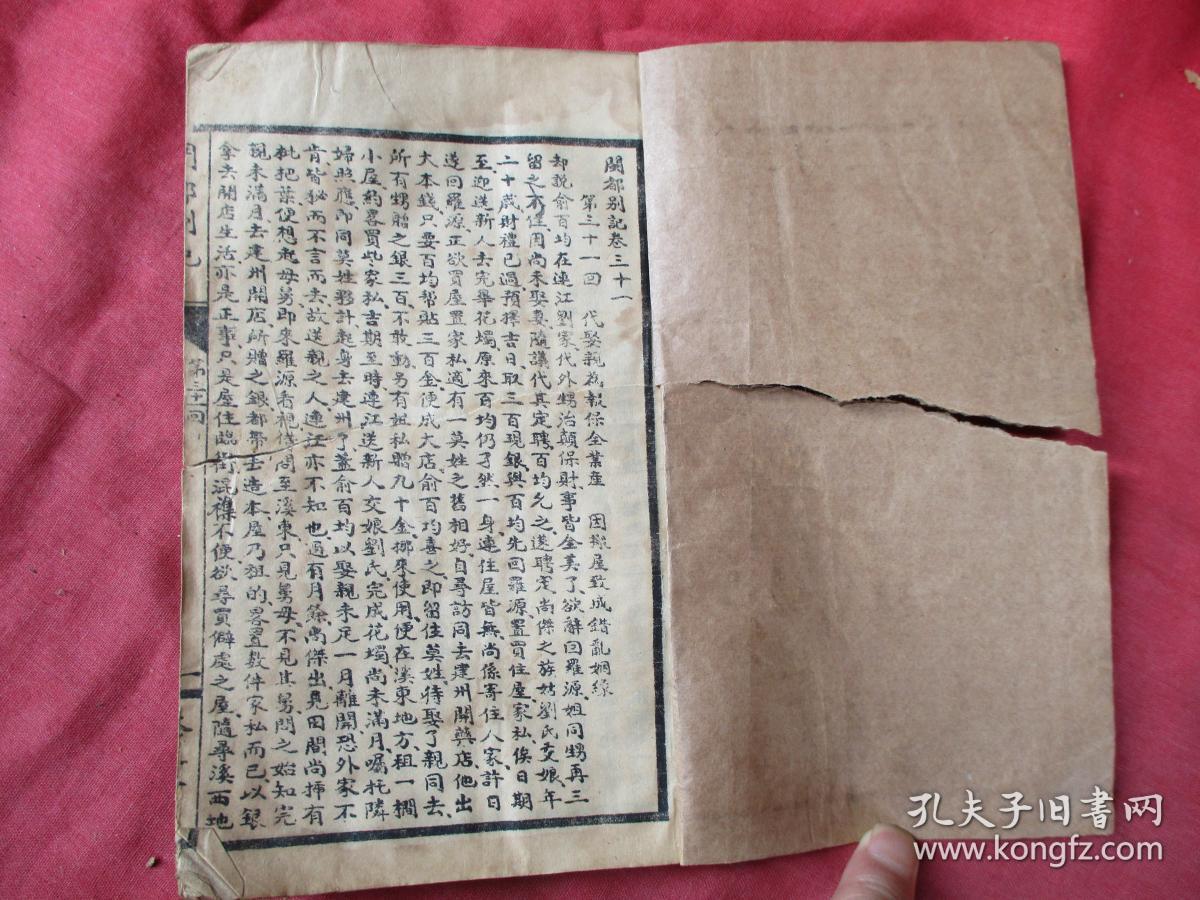 閩都别記卷三十一
第三十一回 代娶親為報保全業産 因搬屋致成錯亂姻緣
却說俞百均在連江劉家代外甥治顛保財事皆全美了欲辭回羅源姐同甥再三
留之不住因尚未娶妻隨議代其定聘百均允之遂聘定尚傑之族姑劉氏 娘年
二十歲財禮已過預擇吉日取三百現銀與百均先回羅源置買住屋家私俟日期
至迎送新人去完舉花燭原來百均仍孑然一身連住屋皆無尚係寄住人家許日
遂回羅源正欲買屋置家私適有一莫姓之舊相好自尋訪同去建州開藥店他出
大本錢只要百均帮貼三百金便成大店俞百均喜之即留住莫姓待娶了親同去
所有甥贈之銀三百不敢動另有姐私贈九十金挪來使用便在溪東地方租一櫊
小屋約畧買些家私吉期至時連江送新人交娘劉氏完成花燭尚未滿月囑托隣
婦照應即同莫姓夥計起身去建州了蓋俞百均以娶親未足一月離開恐外家不
肯皆秘而不言而去故送親之人連江亦不知也過有月餘尚傑出見田間尚揷有
枇把葉便想起母舅即來羅源看視借問至溪東只見舅母不見其舅問之始知完
親未滿月去建州開店所贈之銀都帶去造本屋乃租的畧置数件家私而已以銀
拿去開店生活亦是正事只是屋住臨街混襍不便欲尋買僻處之屋隨尋溪西地
第三十一回
孔夫子旧書网
www.kongfz.com